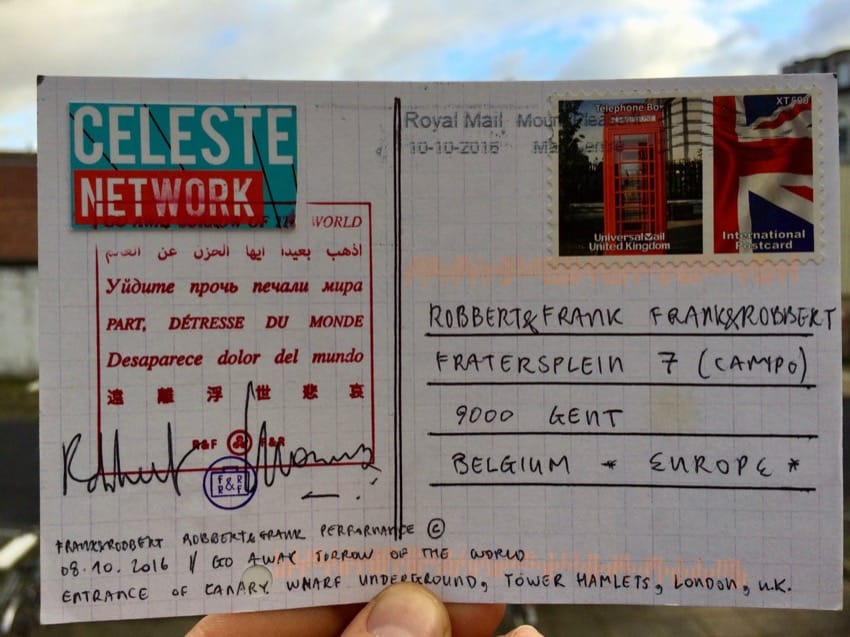 CELESTE
NETWORK
SORROW OF THE WORLD
اذهب بعيدا ايها الحزن عن العالم
Уйдите прочь печали мира
PART, DÉTRESSE DU MONDE
Desaparece dolor del mundo
遠離浮世悲哀
R&F F&R
F&R
R&F
Royal Mail
10-10-2016
Telephone Box
XT 500
Universal Mail
United Kingdom
International
Postcard
ROBBERT&FRANK FRANK&ROBBERT
FRATERSPLEIN 7 (CAMPO)
9000 GENT
BELGIUM * EUROPE *
FRANK&ROBBERT ROBBERT&FRANK PERFORMANCE ©
08.10.2016 // GO AWAY SORROW OF THE WORLD
ENTRANCE OF CANARY WHARF UNDERGROUND, TOWER HAMLETS, LONDON, U.K.